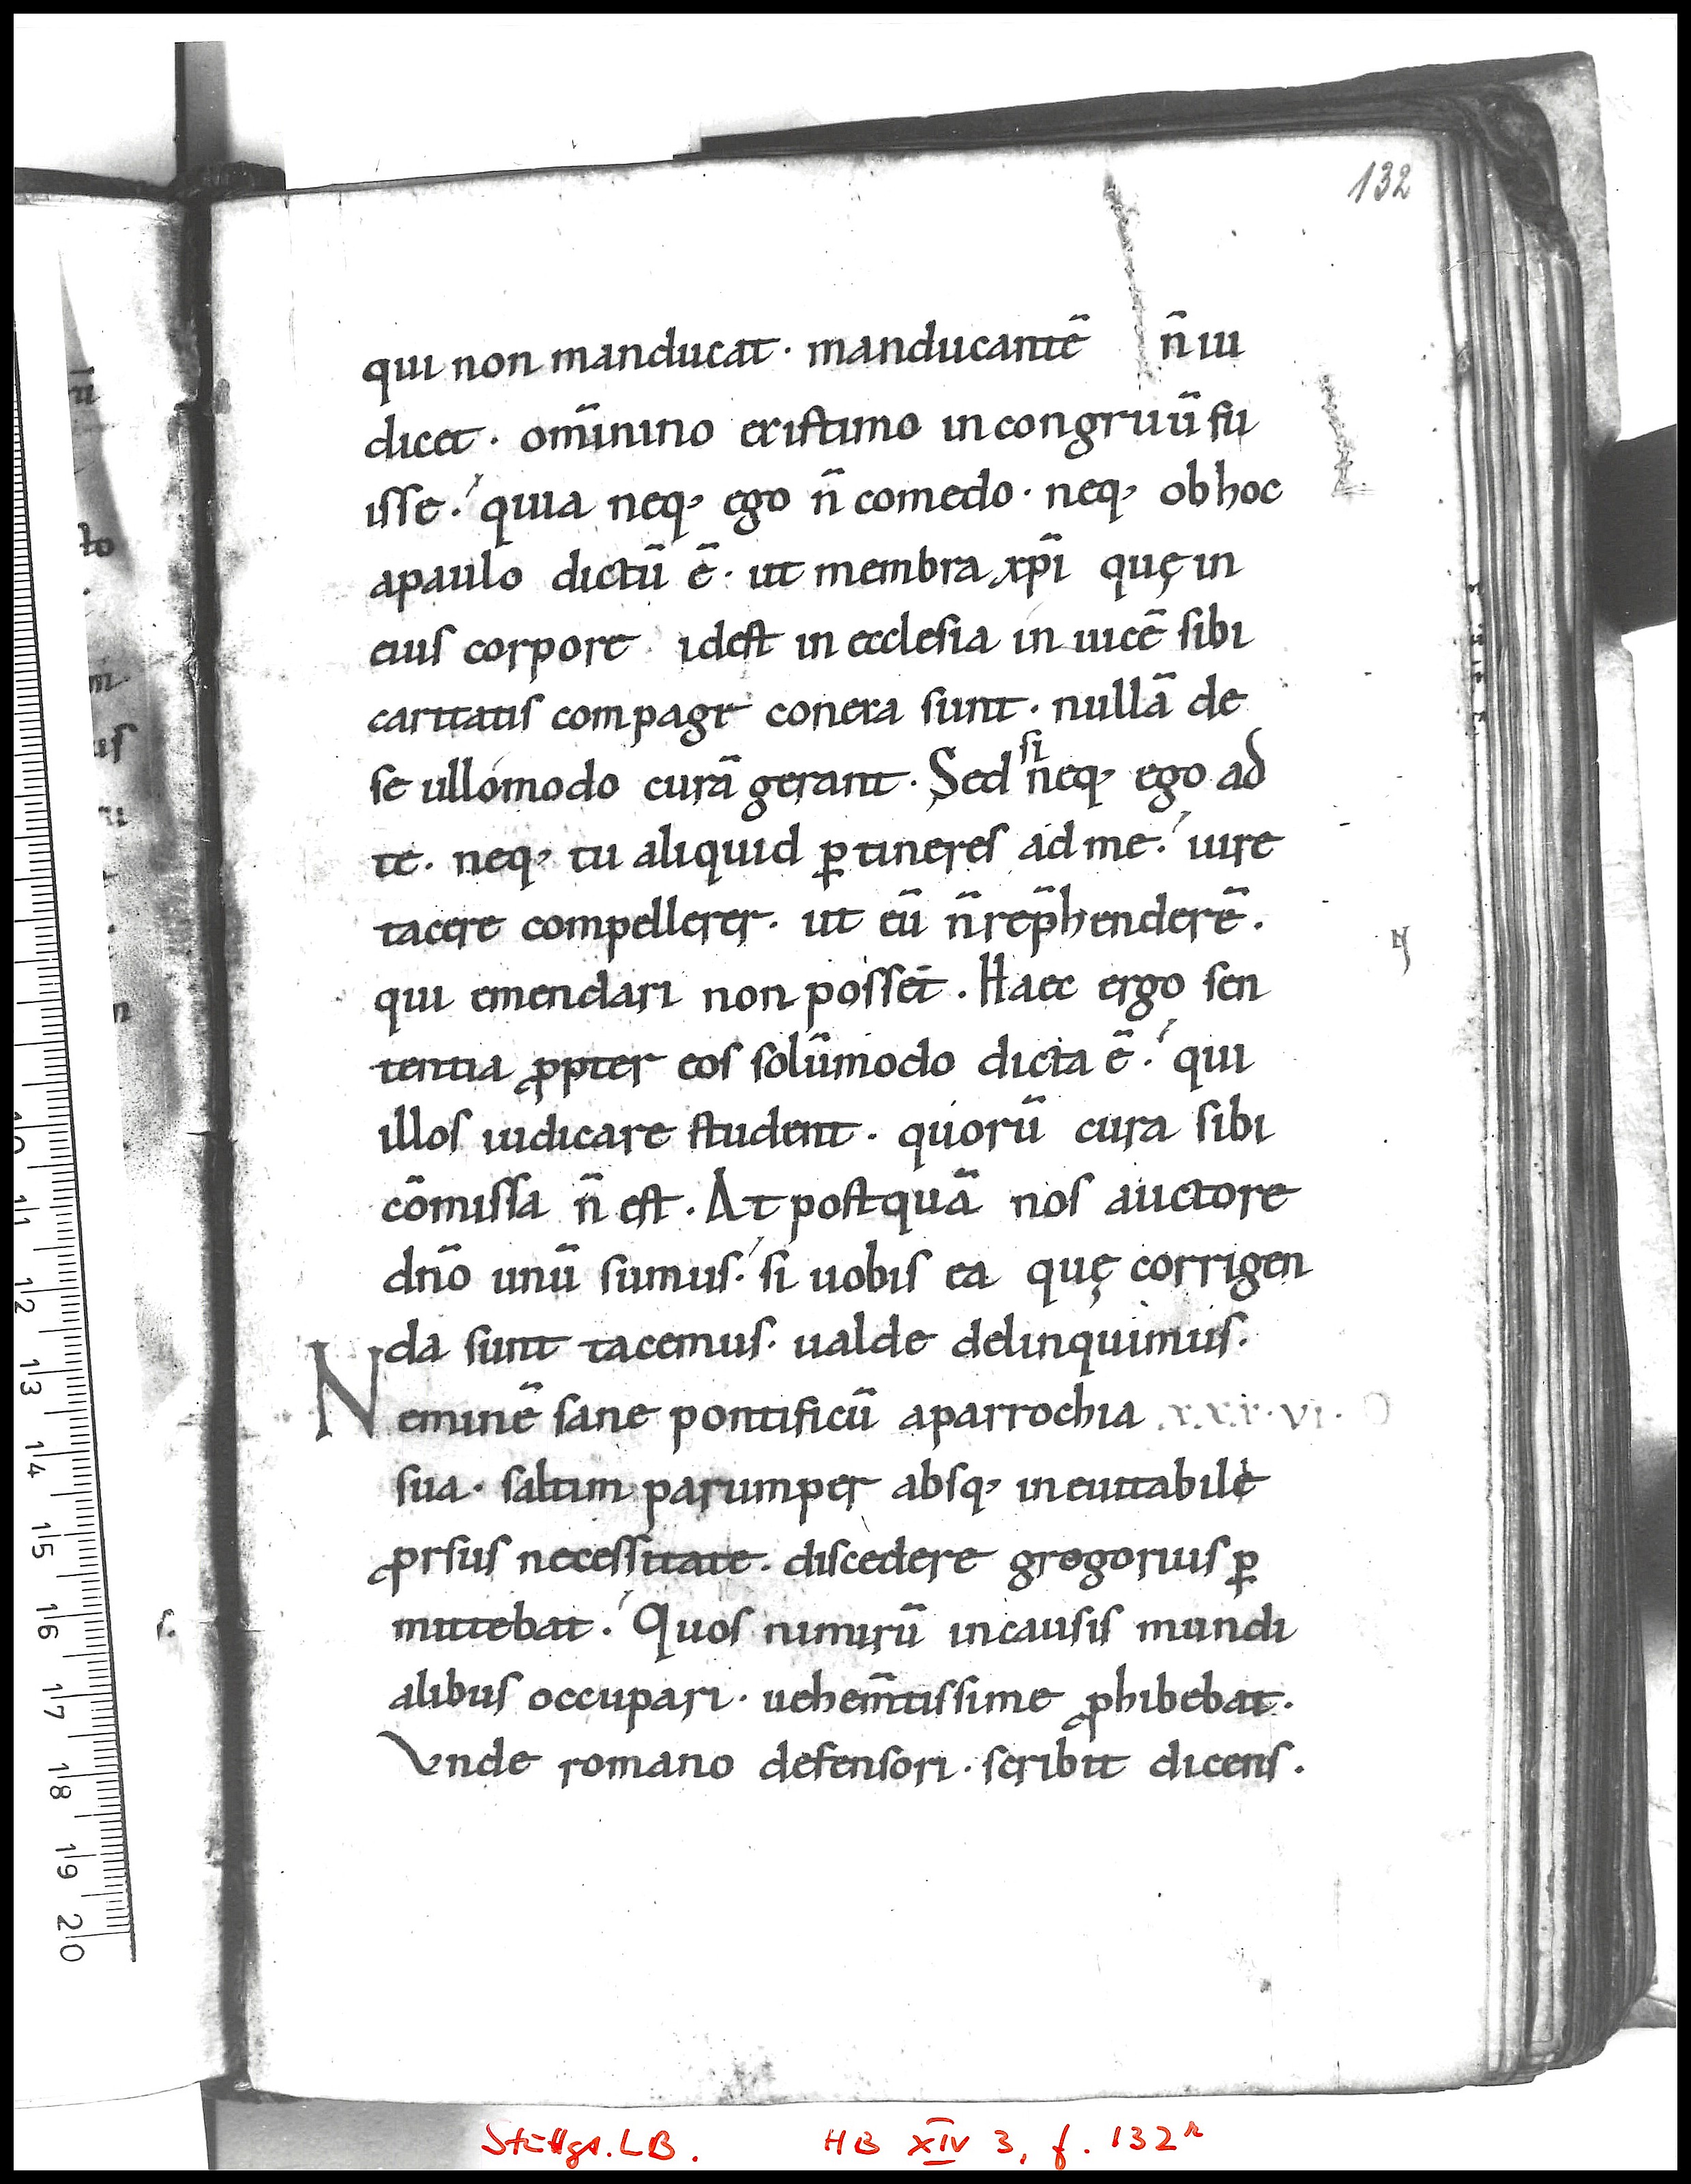 132
qui non manducat · manducantē n̄ iu
dicet · om̄inino existimo incongruū fu
isse. quia neq; ego n̄ comedo · neq; ob hoc
apaulo dictū ē · ut membra xp̄i quę in
eius corpore · idest in ecclesia in uicē sibi
caritatis compage conexa sunt · nullā de
si
se ullomodo curā gerant · Sed neq; ego ad
te. neq; tu aliquid ꝑtineres ad me. iure
tacere compellerer · ut eū n̄ rep̄henderē.
qui emendari non posset. Haec ergo sen
tentia ꝓpter eos solūmodo dicta ē. qui
illos iudicare student. quorū cura sibi
cōmissa n̄ est. At postquā nos auctore
dn̄o unū sumus. si uobis ea quę corrigen
da sunt tacemus. ualde delinquimus.
Neminē sane pontificū aparrochia xxx·vi·
sua · saltim parumper absq; ineuitabile
ꝓrsus necessitate. discedere gregorius ꝑ
mittebat. Quos nimirū incausis mundi
alibus occupari · uehem̄tissime ꝓhibebat.
Vnde romano defensori · scribit dicens.
10
11
12
13
14
15
16
17
18
19
20
Stuttg. LB. HB XIV 3, f. 132r